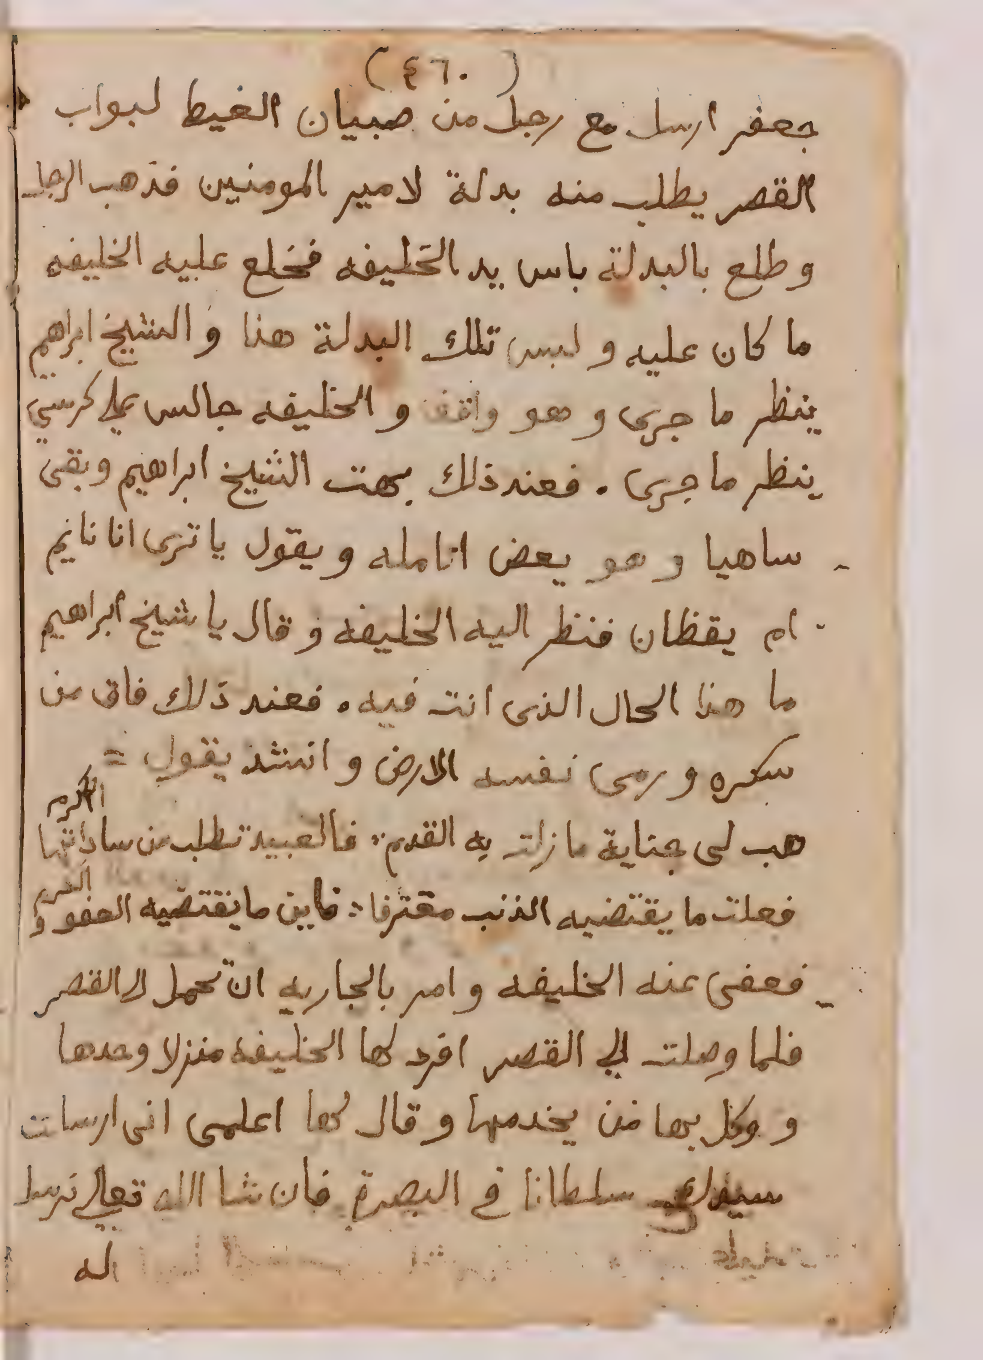 (٤٦٠)
جعفر ارسل مع رجل من صبيان الغيط لبواب
القصر يطلب منه بدلة لامير المومنين فذهب الرجل
و طلع بالبدلة باس يد الخليفه فخلع عليه الخليفه
ما كان عليه و لبس تلك البدلة هذا و الشيخ ابراهيم
ينظر ما جرى و هو واقف و الخليفه جالس على كرسي
ينظر ما جرى . فعند ذلك بهت الشيخ ابراهيم وبقى
ساهيا و هو يعض انامله و يقول يا ترى انا نايم
ام يقظان فنظر اليه الخليفه و قال يا شيخ ابراهيم
ما هذا الحال الذى انت فيه . فعند ذلك فاق من
سكره و رمى نفسه الارض و انشد يقول =
هب لى جناية ما زلت به القدم : فالعبيد تطلب من ساداتها الكرم
فعلت ما يقتضيه الذنب معترفا : فاين ما يقتضيه العفو و الكرم
فعفى عنه الخليفه و امر بالجاريه ان تحمل الى القصر
فلما وصلت الى القصر افرد لها الخليفه منزلا وحدها
و وكل بها من يخدمها و قال لها اعلمى انى ارسلت
سيدك سلطانا فى البصرة فان شا الله تعالى نرسل
له